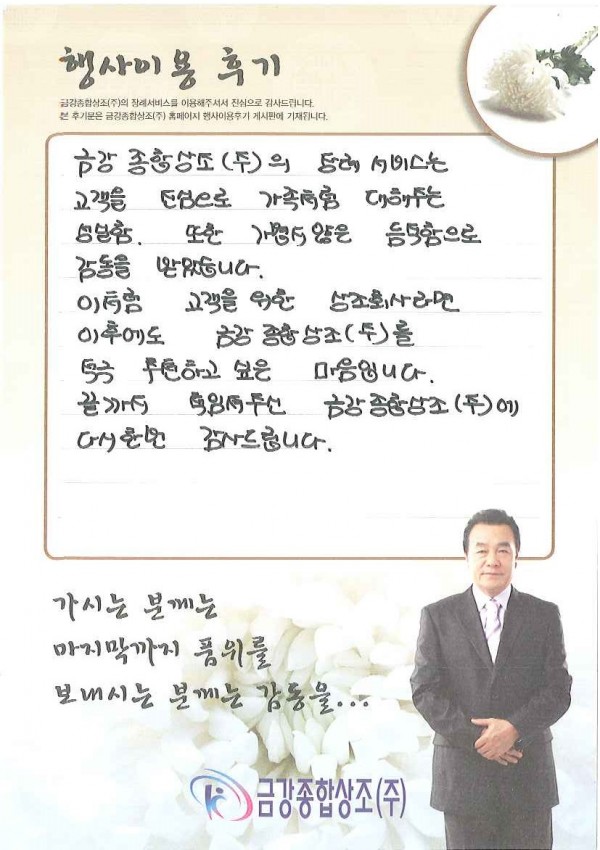 행사이용 후기
금강종합상조(주)의 장례서비스를 이용해주셔서 진심으로 감사드립니다.
본 후기문은 금강종합상조(주) 홈페이지 행사이용후기 게시판에 기재됩니다.
금강 종합상조(주)의 장례 서비스는
고객을 진심으로 가족처럼 대해주는
성실함. 또한 가볍지않은 듬직함으로
감동을 받았습니다.
이처럼 고객을 위한 상조회사라면
이후에도 금강 종합상조(주)를
적극 추천하고 싶은 마음입니다.
끝까지 책임져주신 금강종합상조(주)에
다시한번 감사드립니다.
가시는 분께는
마지막까지 품위를
보내시는 분께는 감동을...
금강종합상조(주)